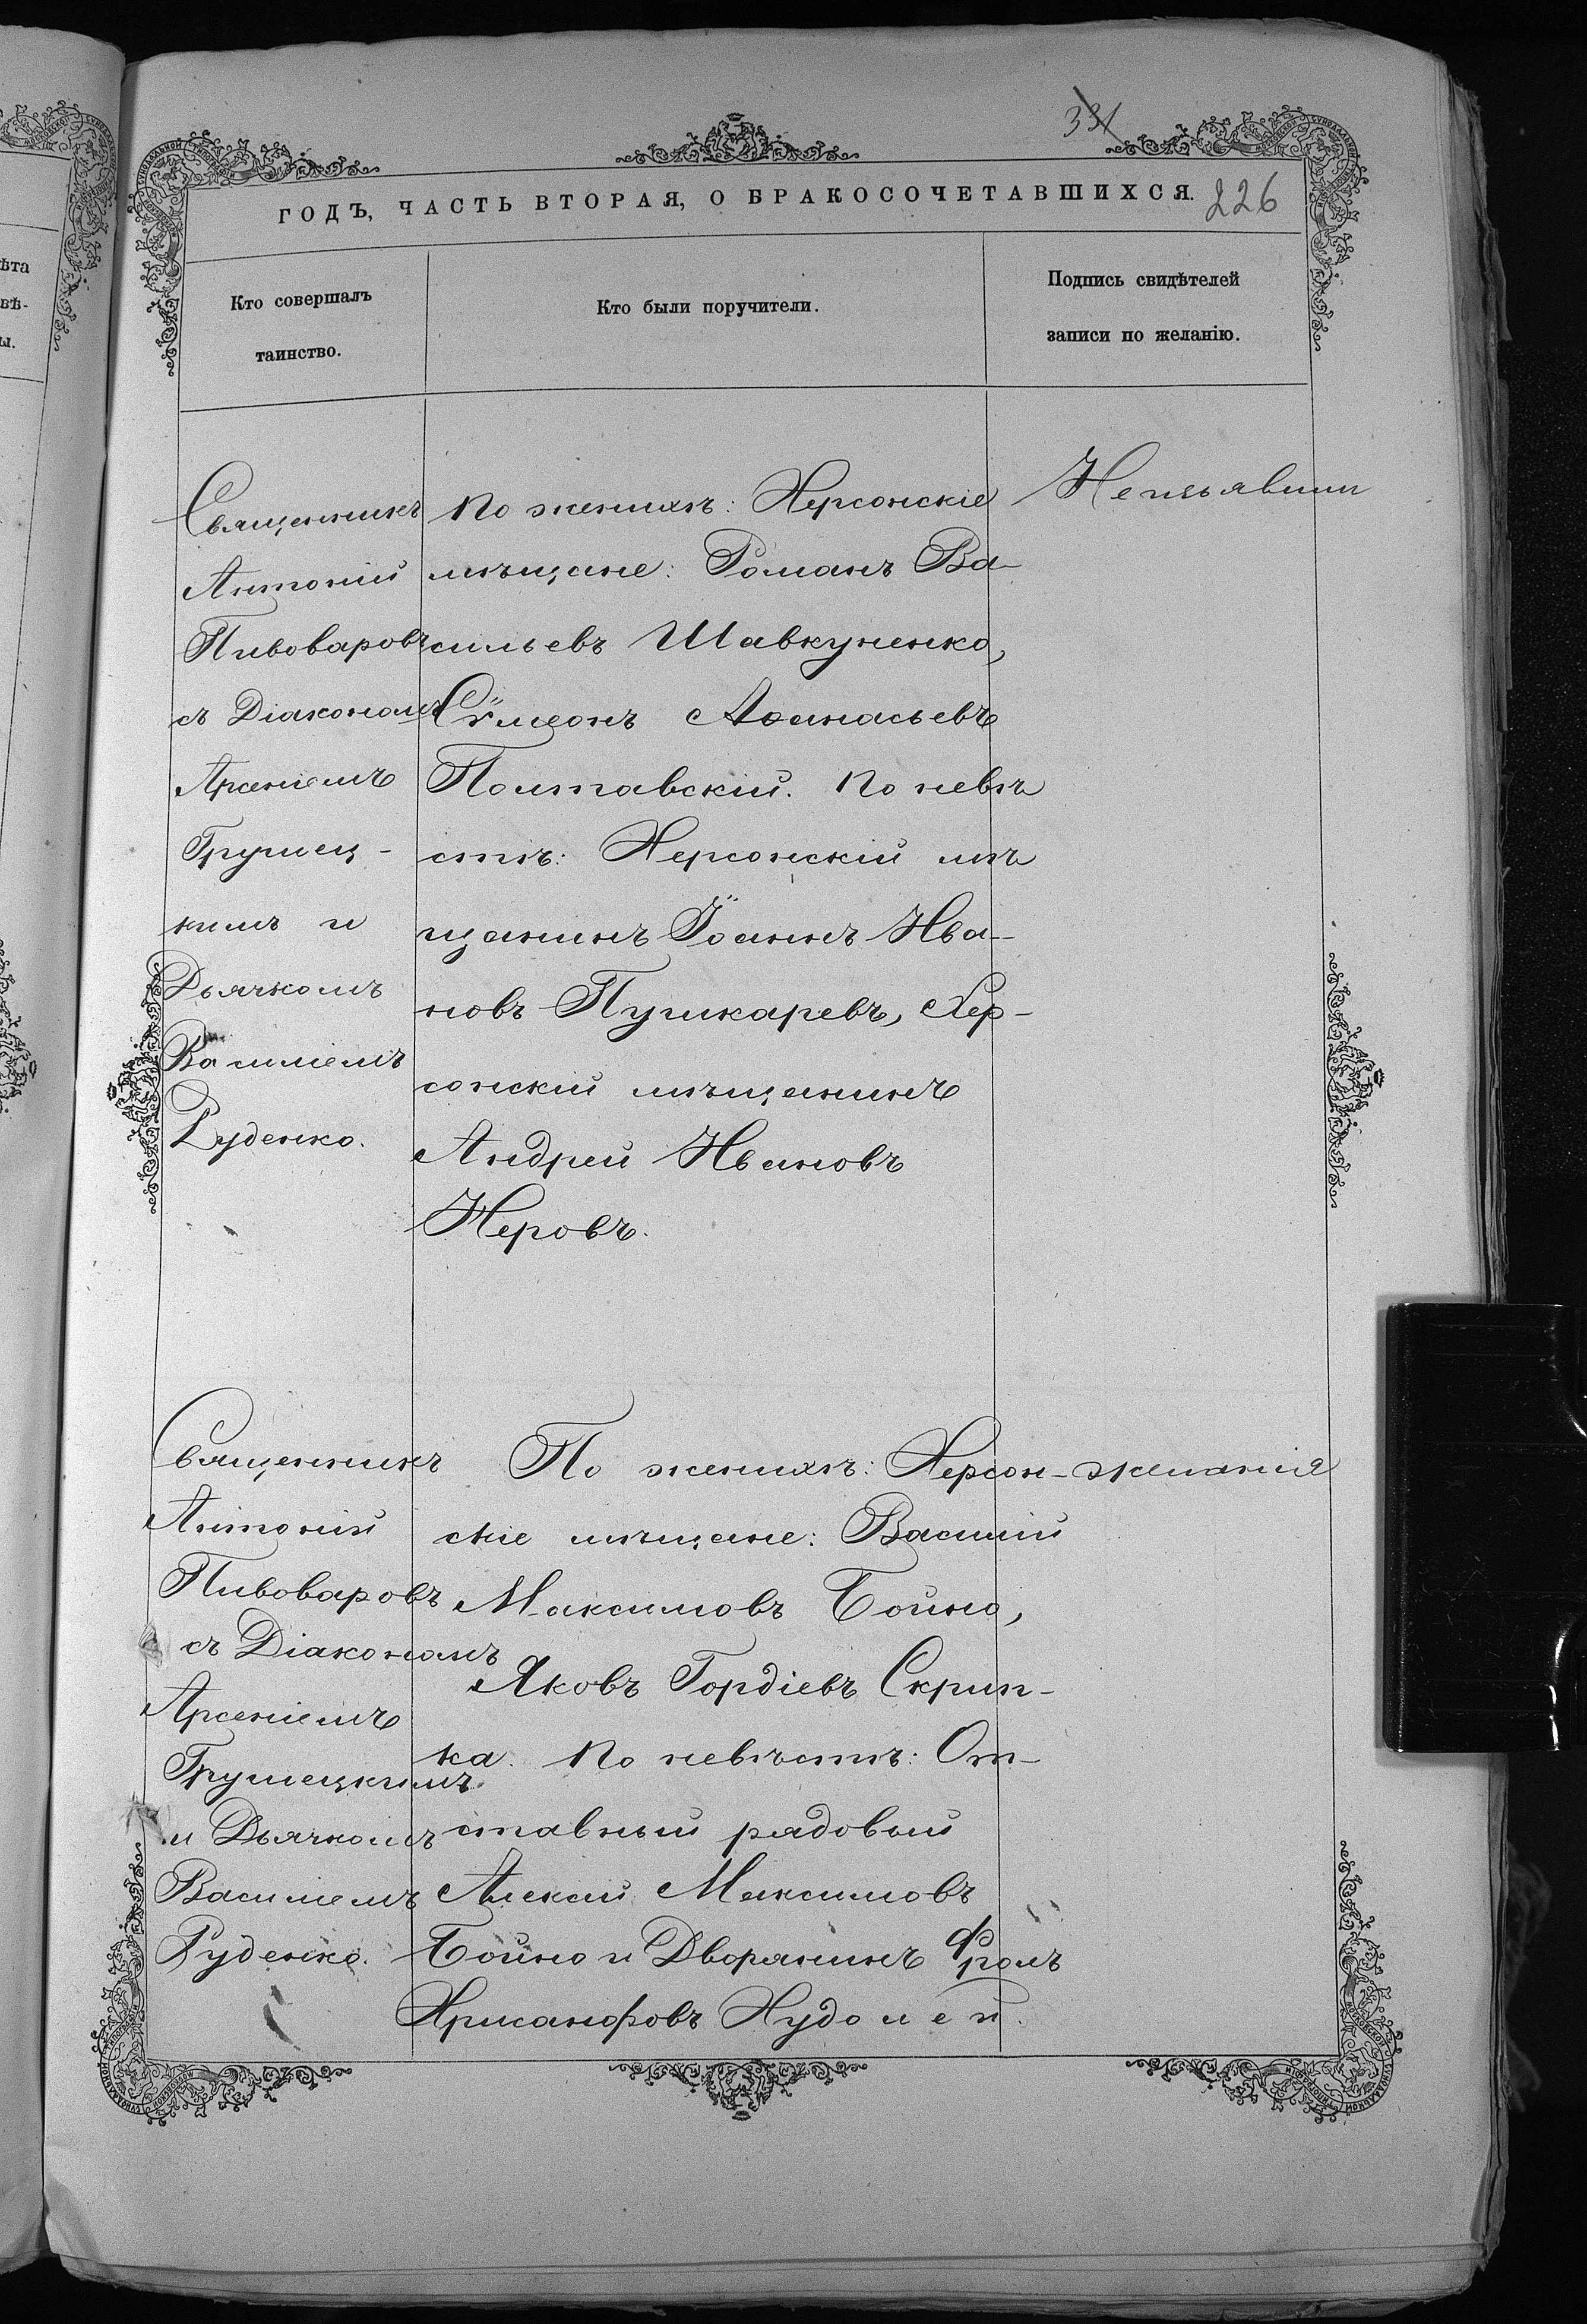 331
ГОДЪ, ЧАСТЬ ВТОРАЯ, О БРАКОСОЧЕТАВШИХСЯ.
226
Кто совершалъ
таинство.
Кто были поручители.
Подпись свидѣтелей
записи по желанію.
ѣта
вѣ-
ы.
Священникъ
Антоній
Пивоваровъ
съ Діакономъ
Арсеніемъ
Грушец-
кимъ и
Дьячкомъ
Василіемъ
Руденко.
По женихѣ: Херсонскіе
мѣщане: Романъ Ва-
сильевъ Шавкуненко,
Сѵмеонъ Аѳанасьевъ
Полтавскій. По невѣ
стѣ: Херсонскій мѣ
щанинъ Іоаннъ Ива-
новъ Пушкаревъ, Хер-
сонскій мѣщанинъ
Андрей Ивановъ
Неровъ.
Неизъявили
Священникъ
Антоній
Пивоваровъ
съ Діакономъ
Арсеніемъ
Грушецкимъ
и Дьячкомъ
Василіемъ
Руденко.
По женихѣ: Херсон-
скіе мѣщане: Василій
Максимовъ Бойно,
Яковъ Гордіевъ Скрип-
ка. По невѣстѣ: От-
ставный рядовый
Алексій Максимовъ
Бойно и Дворянинъ Фролъ
Хрисанфовъ
желанія